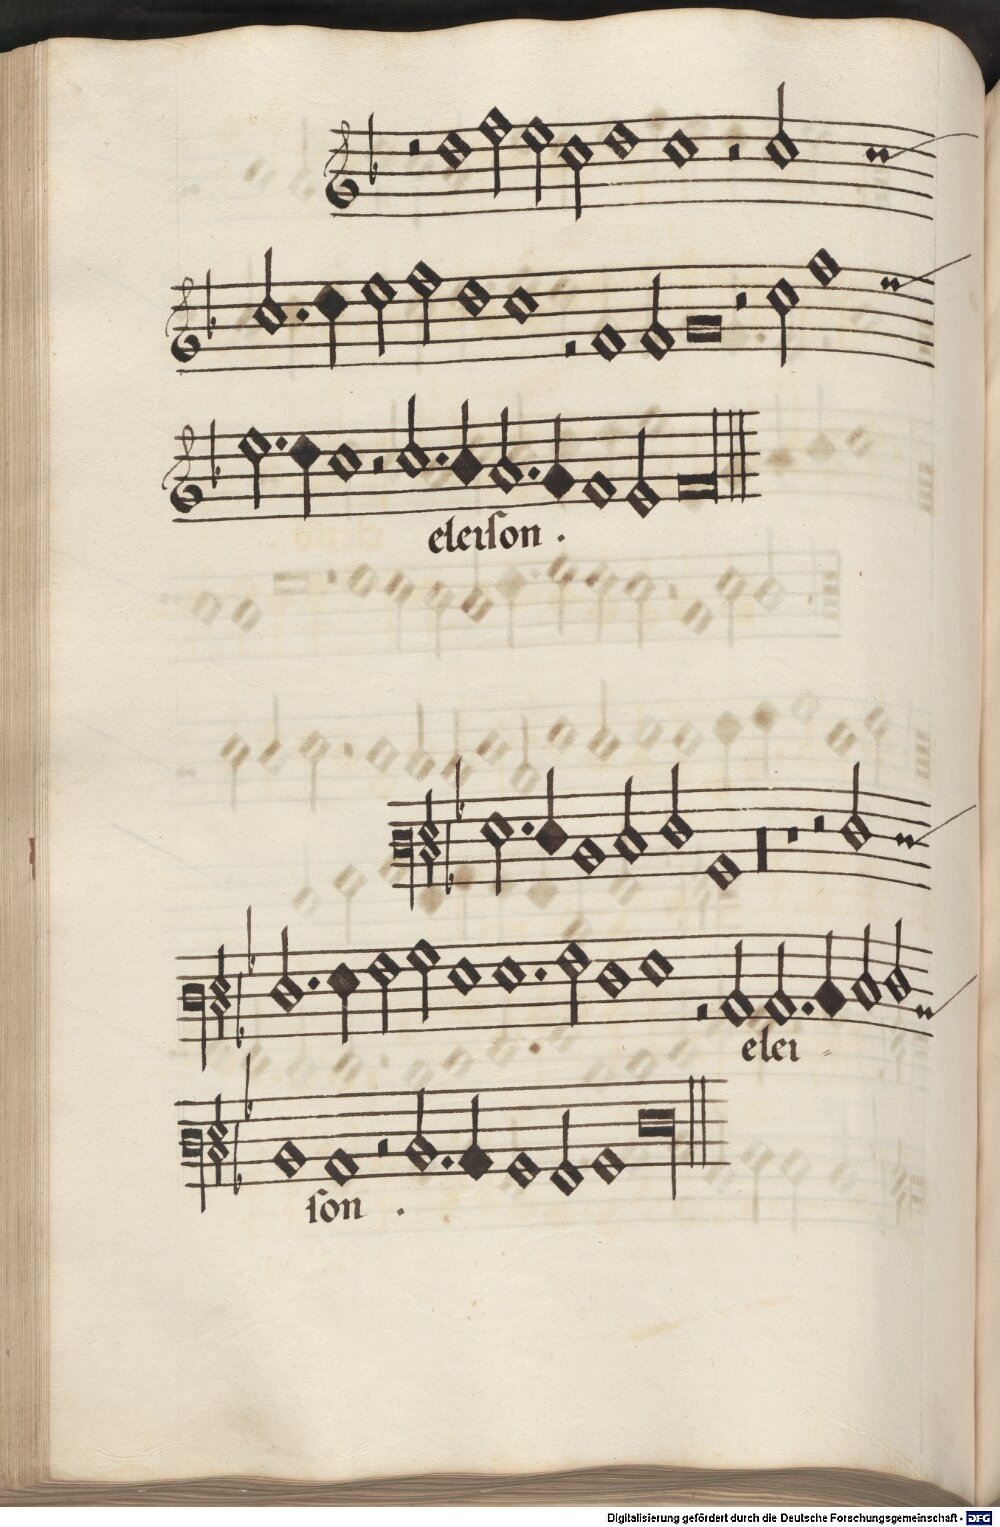 eleiſon .
elei =
ſon .
Digitalisierung gefördert durch die Deutsche Forschungsgemeinschaft - DFG